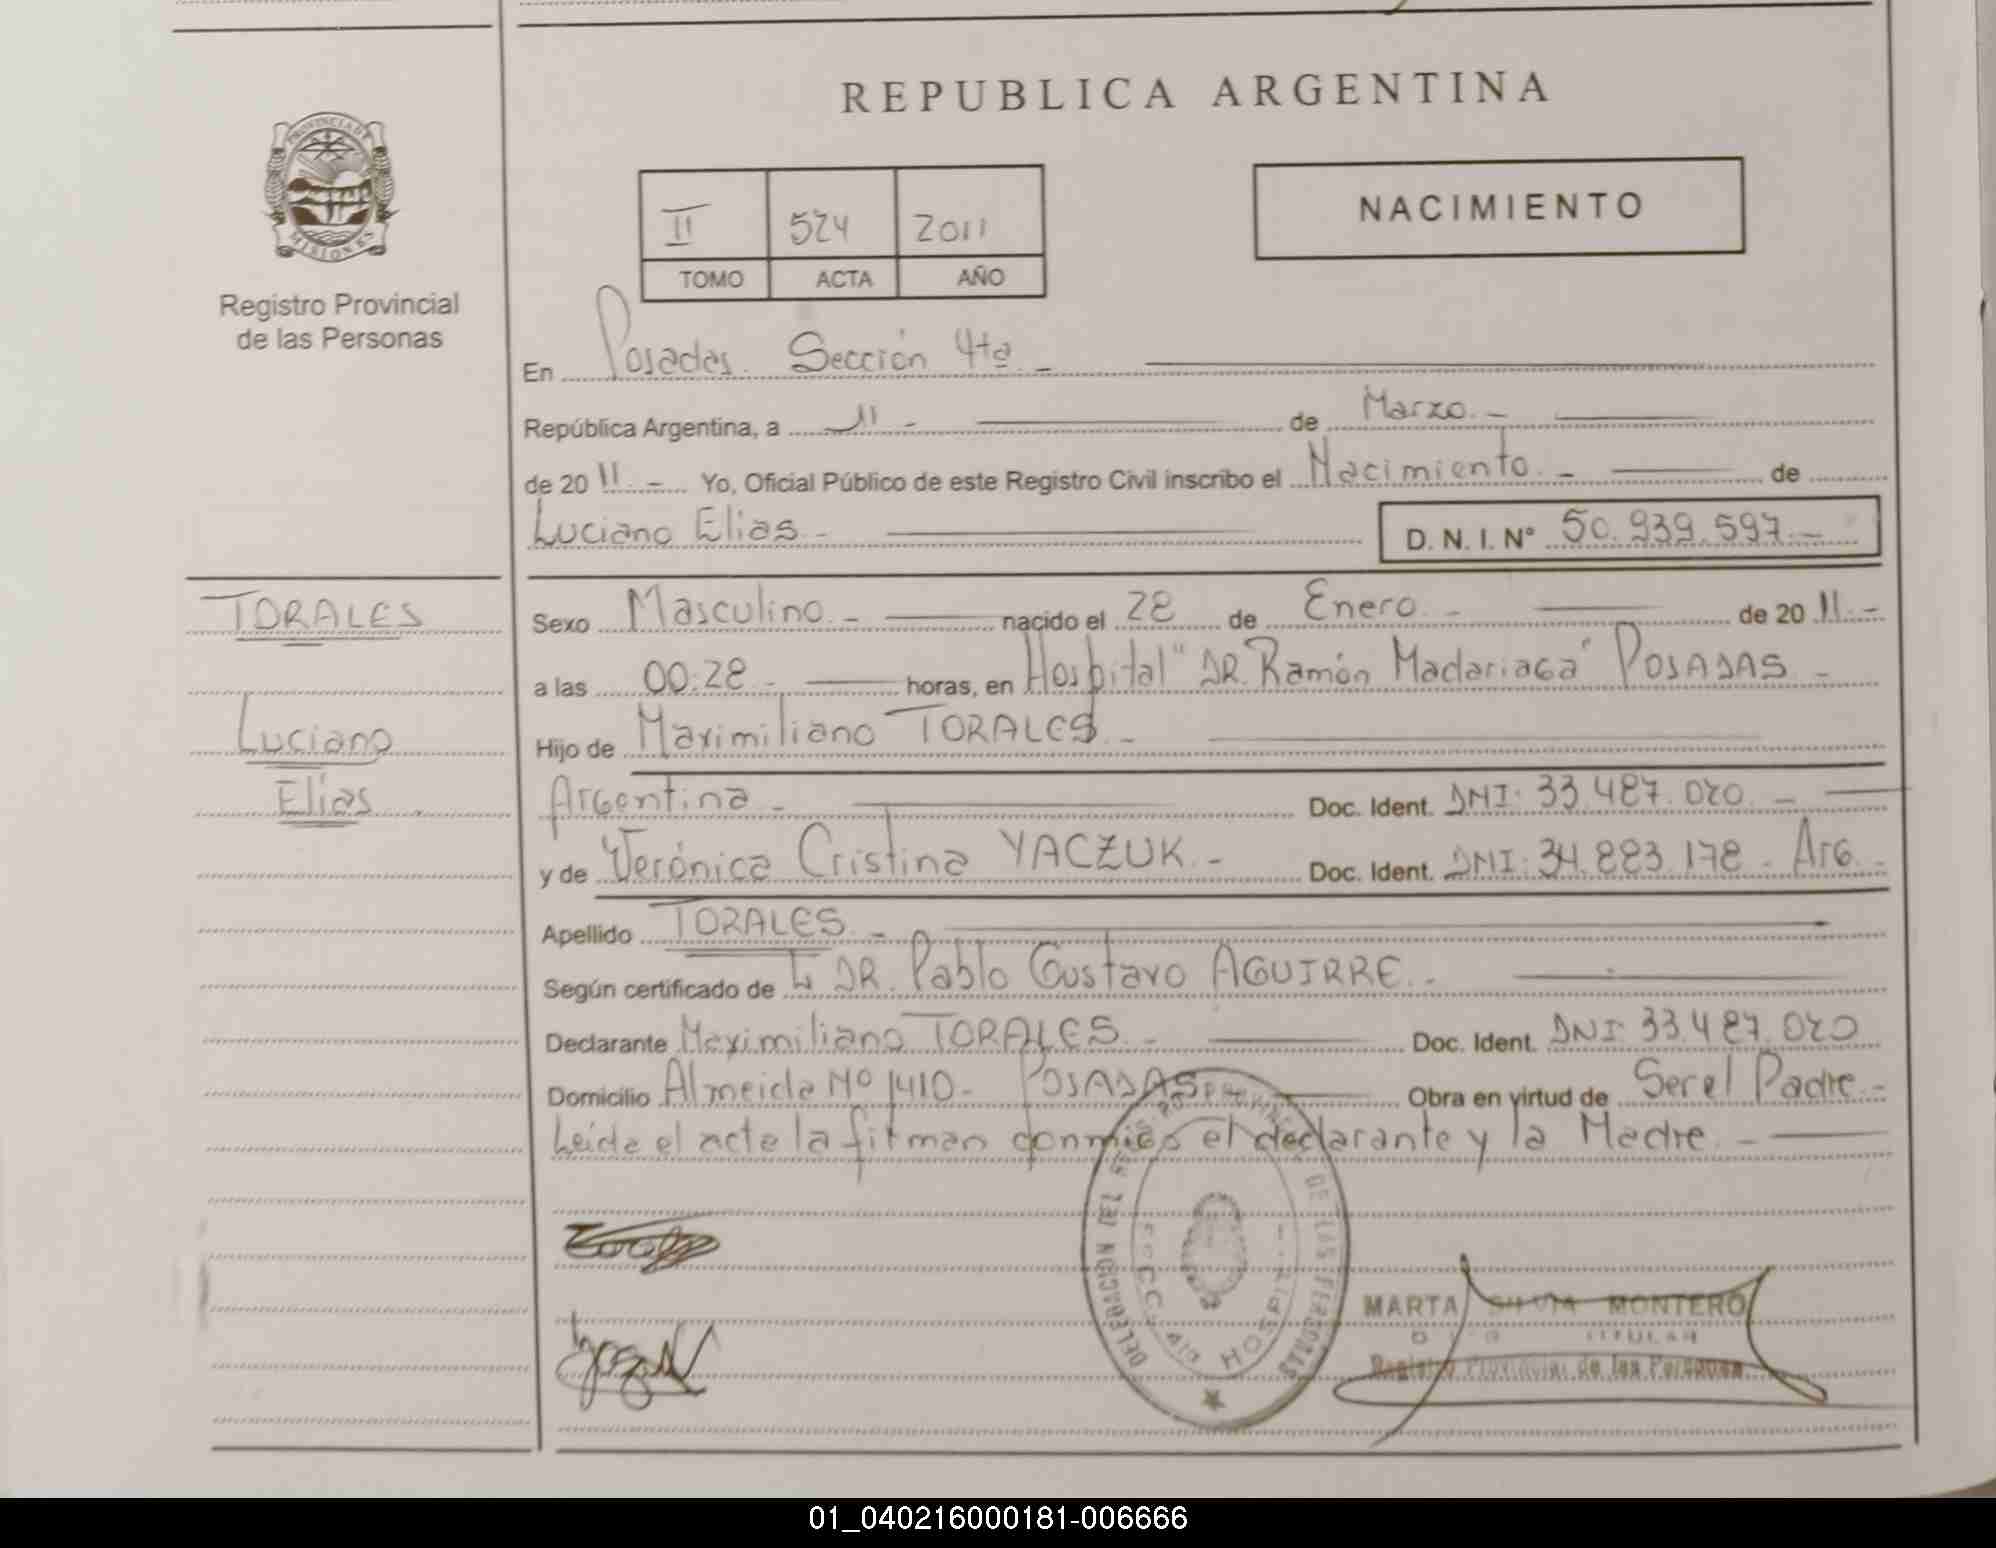 REPUBLICA ARGENTINA
PROVINCIA DE
MISIONES
Registro Provincial
de las Personas
II 524 2011
TOMO ACTA AÑO
NACIMIENTO
En Posadas. Sección 4ta. -
República Argentina, a 11 - de Marzo. -
de 20 11. - Yo, Oficial Público de este Registro Civil inscribo el Nacimiento. - de
Luciano Elias. - D. N. I. Nº 50.939.597. -
TORALES
Luciano
Elias.
Sexo Masculino. - nacido el 28 de Enero. - de 20 11. -
a las 00:28 - horas, en Hospital "DR. Ramón Madariaga" POSADAS. -
Hijo de Maximiliano TORALES. -
Argentina. - Doc. Ident. DNI: 33.487.020. -
y de Verónica Cristina YACZUK. - Doc. Ident. DNI: 34.883.178 - Arg. -
Apellido TORALES. -
Según certificado de DR. Pablo Gustavo AGUIRRE. -
Declarante Maximiliano TORALES. - Doc. Ident. DNI: 33.487.020
Domicilio Almeida Nº 1410 - POSADAS Obra en virtud de Ser el Padre. -
Leída el acta la firman conmigo el declarante y la Madre. -
DELEGACION DEL REGISTRO PROVINCIAL DE LAS PERSONAS
HOSPITAL
MARTA SILVIA MONTERO
TITULAR
Registro Provincial de las Personas
01_040216000181-006666